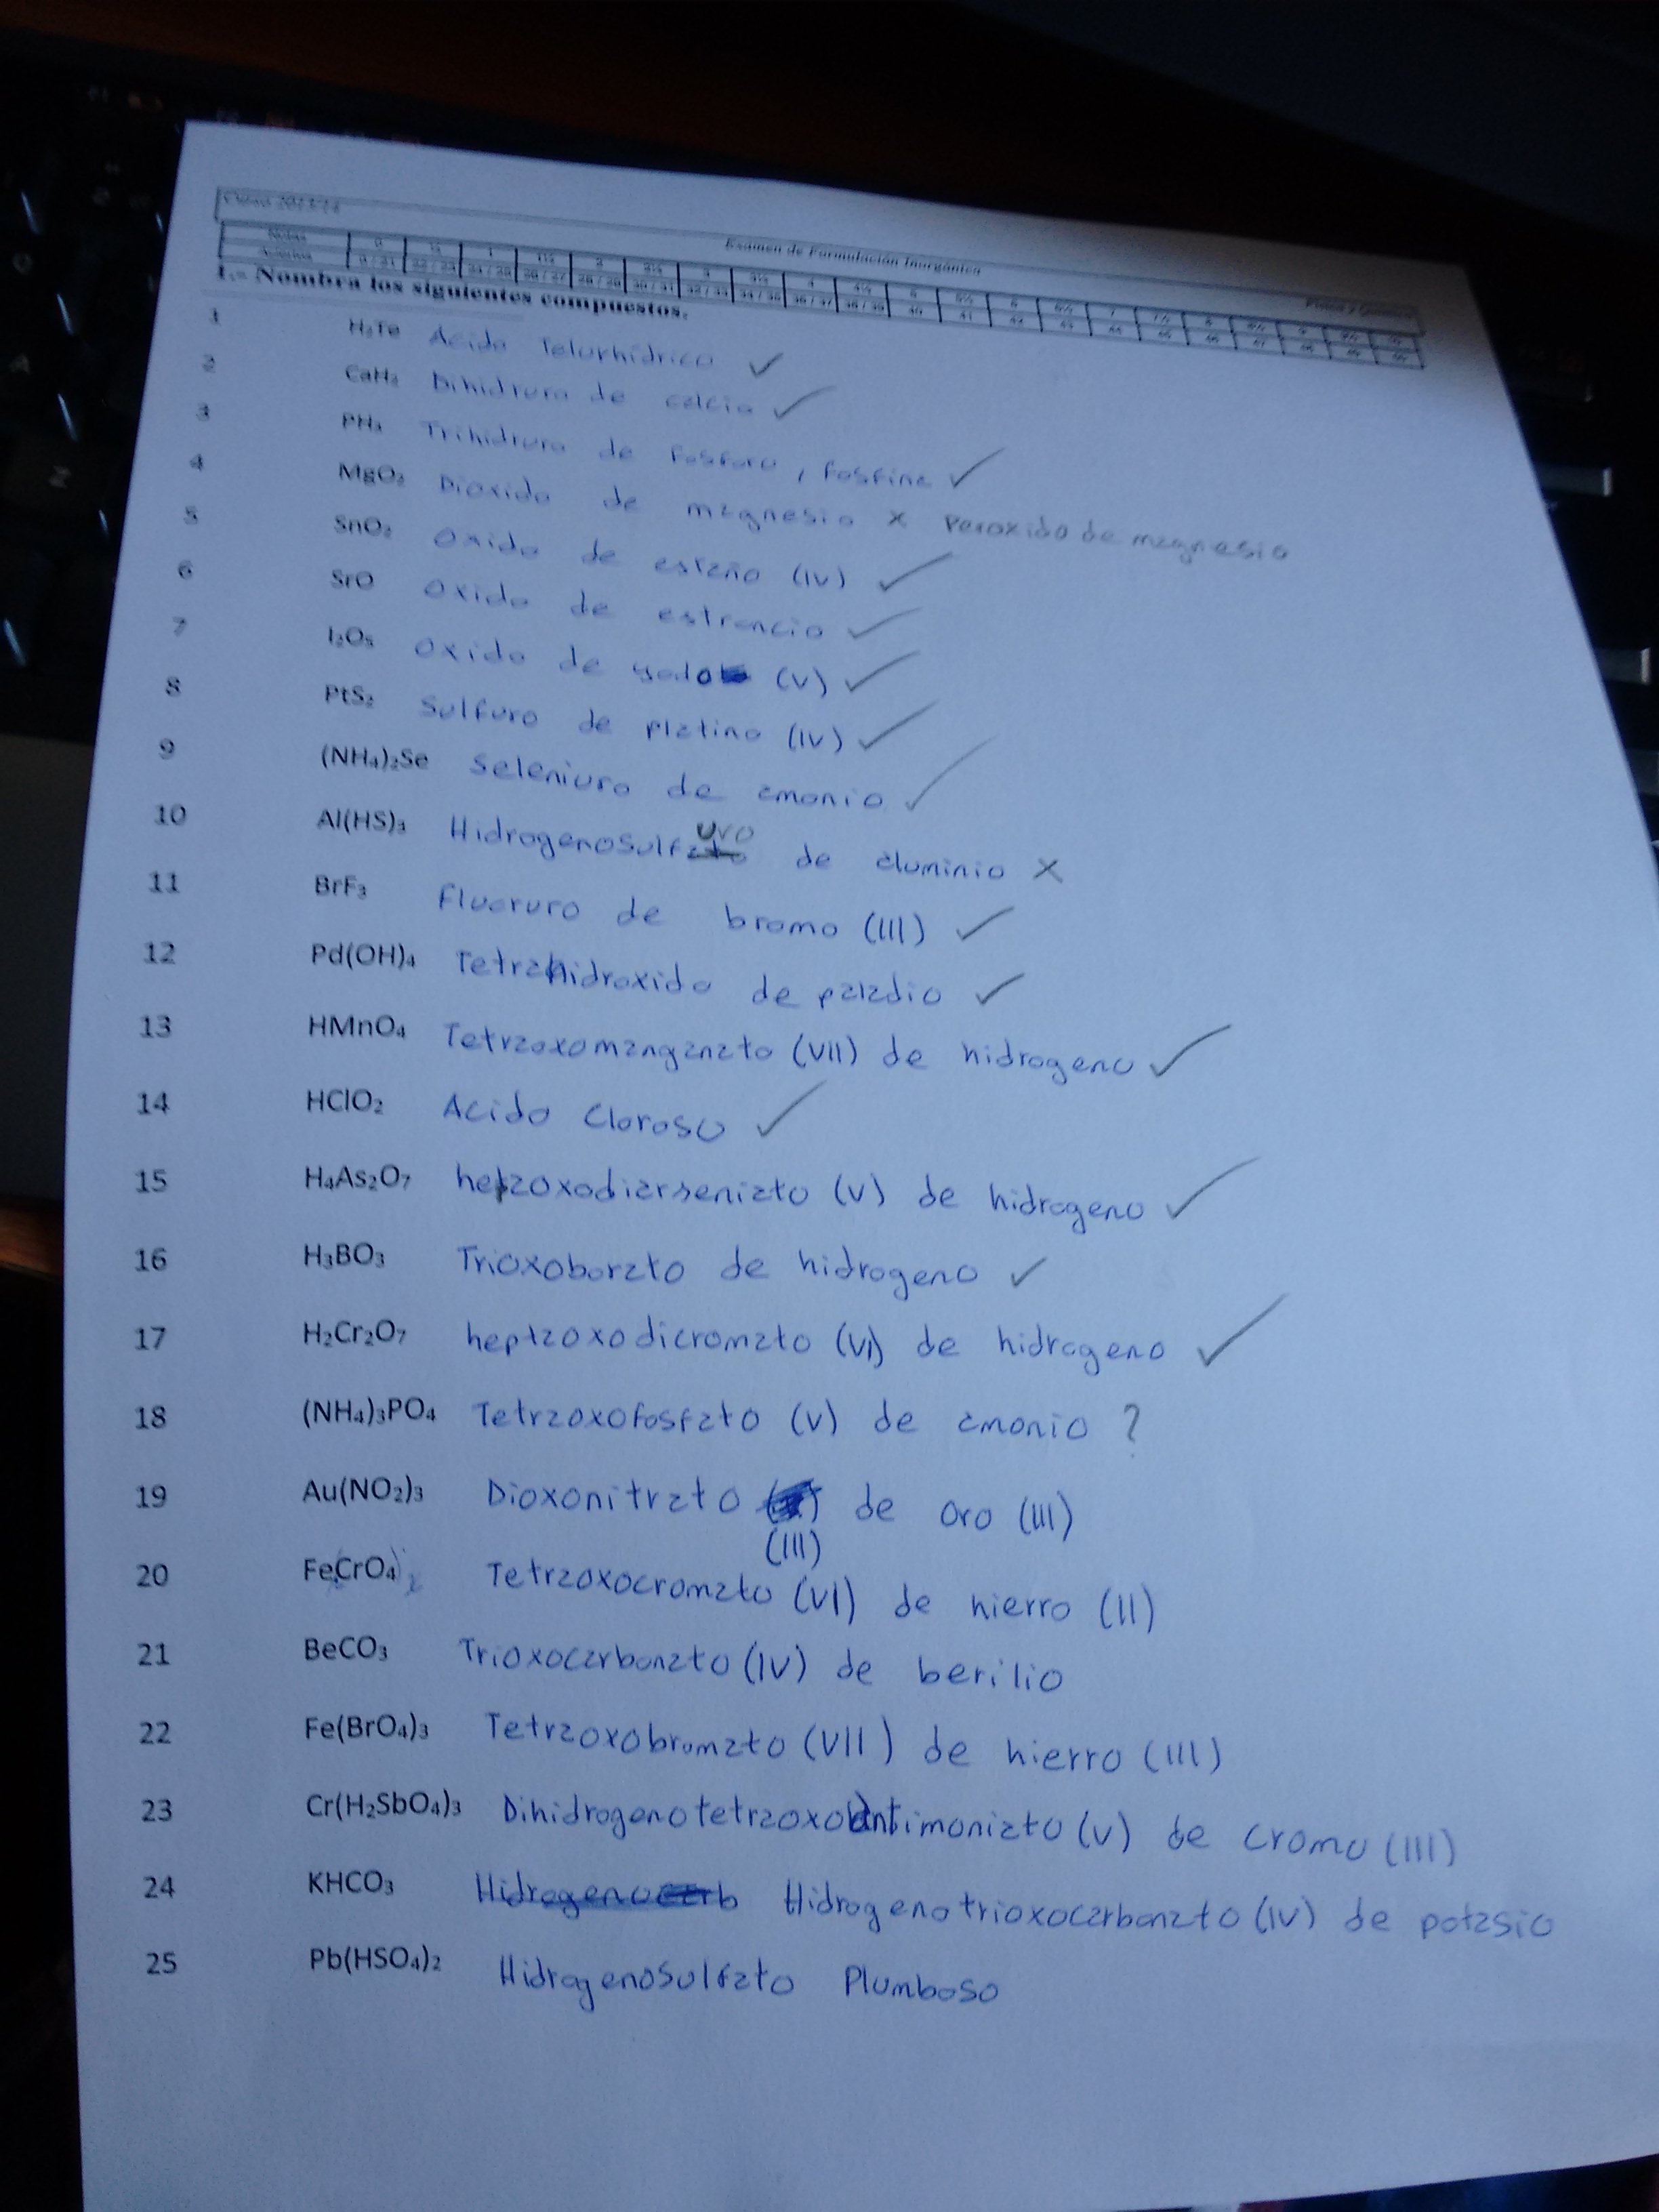 Curso 2013-14
Examen de Formulación Inorgánica
Física y Química
Notas 0 ½ 1 1½ 2 2½ 3 3½ 4 4½ 5 5½ 6 6½ 7 7½ 8 8½ 9 9½ 10
Aciertos 0 / 21 22 / 23 24 / 25 26 / 27 28 / 29 30 / 31 32 / 33 34 / 35 36 / 37 38 / 39 40 41 42 43 44 45 46 47 48 49 50
1.- Nombra los siguientes compuestos.
1 H₂Te Acido Telurhídrico ✓
2 CaH₂ Dihidruro de calcio ✓
3 PH₃ Trihidruro de fosforo, fosfina ✓
4 MgO₂ Dioxido de magnesio x Peroxido de magnesio
5 SnO₂ Oxido de estaño (IV) ✓
6 SrO Oxido de estroncio ✓
7 I₂O₅ Oxido de yodo (V) ✓
8 PtS₂ Sulfuro de platino (IV) ✓
9 (NH₄)₂Se Seleniuro de amonio ✓
10 Al(HS)₃ Hidrogenosulfato uro de aluminio X
11 BrF₃ Fluoruro de bromo (III) ✓
12 Pd(OH)₄ Tetrahidroxido de paladio ✓
13 HMnO₄ Tetraoxomanganato (VII) de hidrogeno ✓
14 HClO₂ Acido Cloroso ✓
15 H₄As₂O₇ heptaoxodiarseniato (V) de hidrogeno ✓
16 H₃BO₃ Trioxoborato de hidrogeno ✓
17 H₂Cr₂O₇ heptaoxodicromato (VI) de hidrogeno ✓
18 (NH₄)₃PO₄ Tetraoxofosfato (V) de amonio ?
19 Au(NO₂)₃ Dioxonitrato (III) de oro (III)
20 Fe(CrO₄)₂ Tetraoxocromato (VI) de hierro (II)
21 BeCO₃ Trioxocarbonato (IV) de berilio
22 Fe(BrO₄)₃ Tetraoxobromato (VII) de hierro (III)
23 Cr(H₂SbO₄)₃ Dihidrogenotetraoxoantimoniato (V) de cromo (III)
24 KHCO₃ Hidrogenocarb Hidrogenotrioxocarbonato (IV) de potasio
25 Pb(HSO₄)₂ Hidrogenosulfato Plumboso